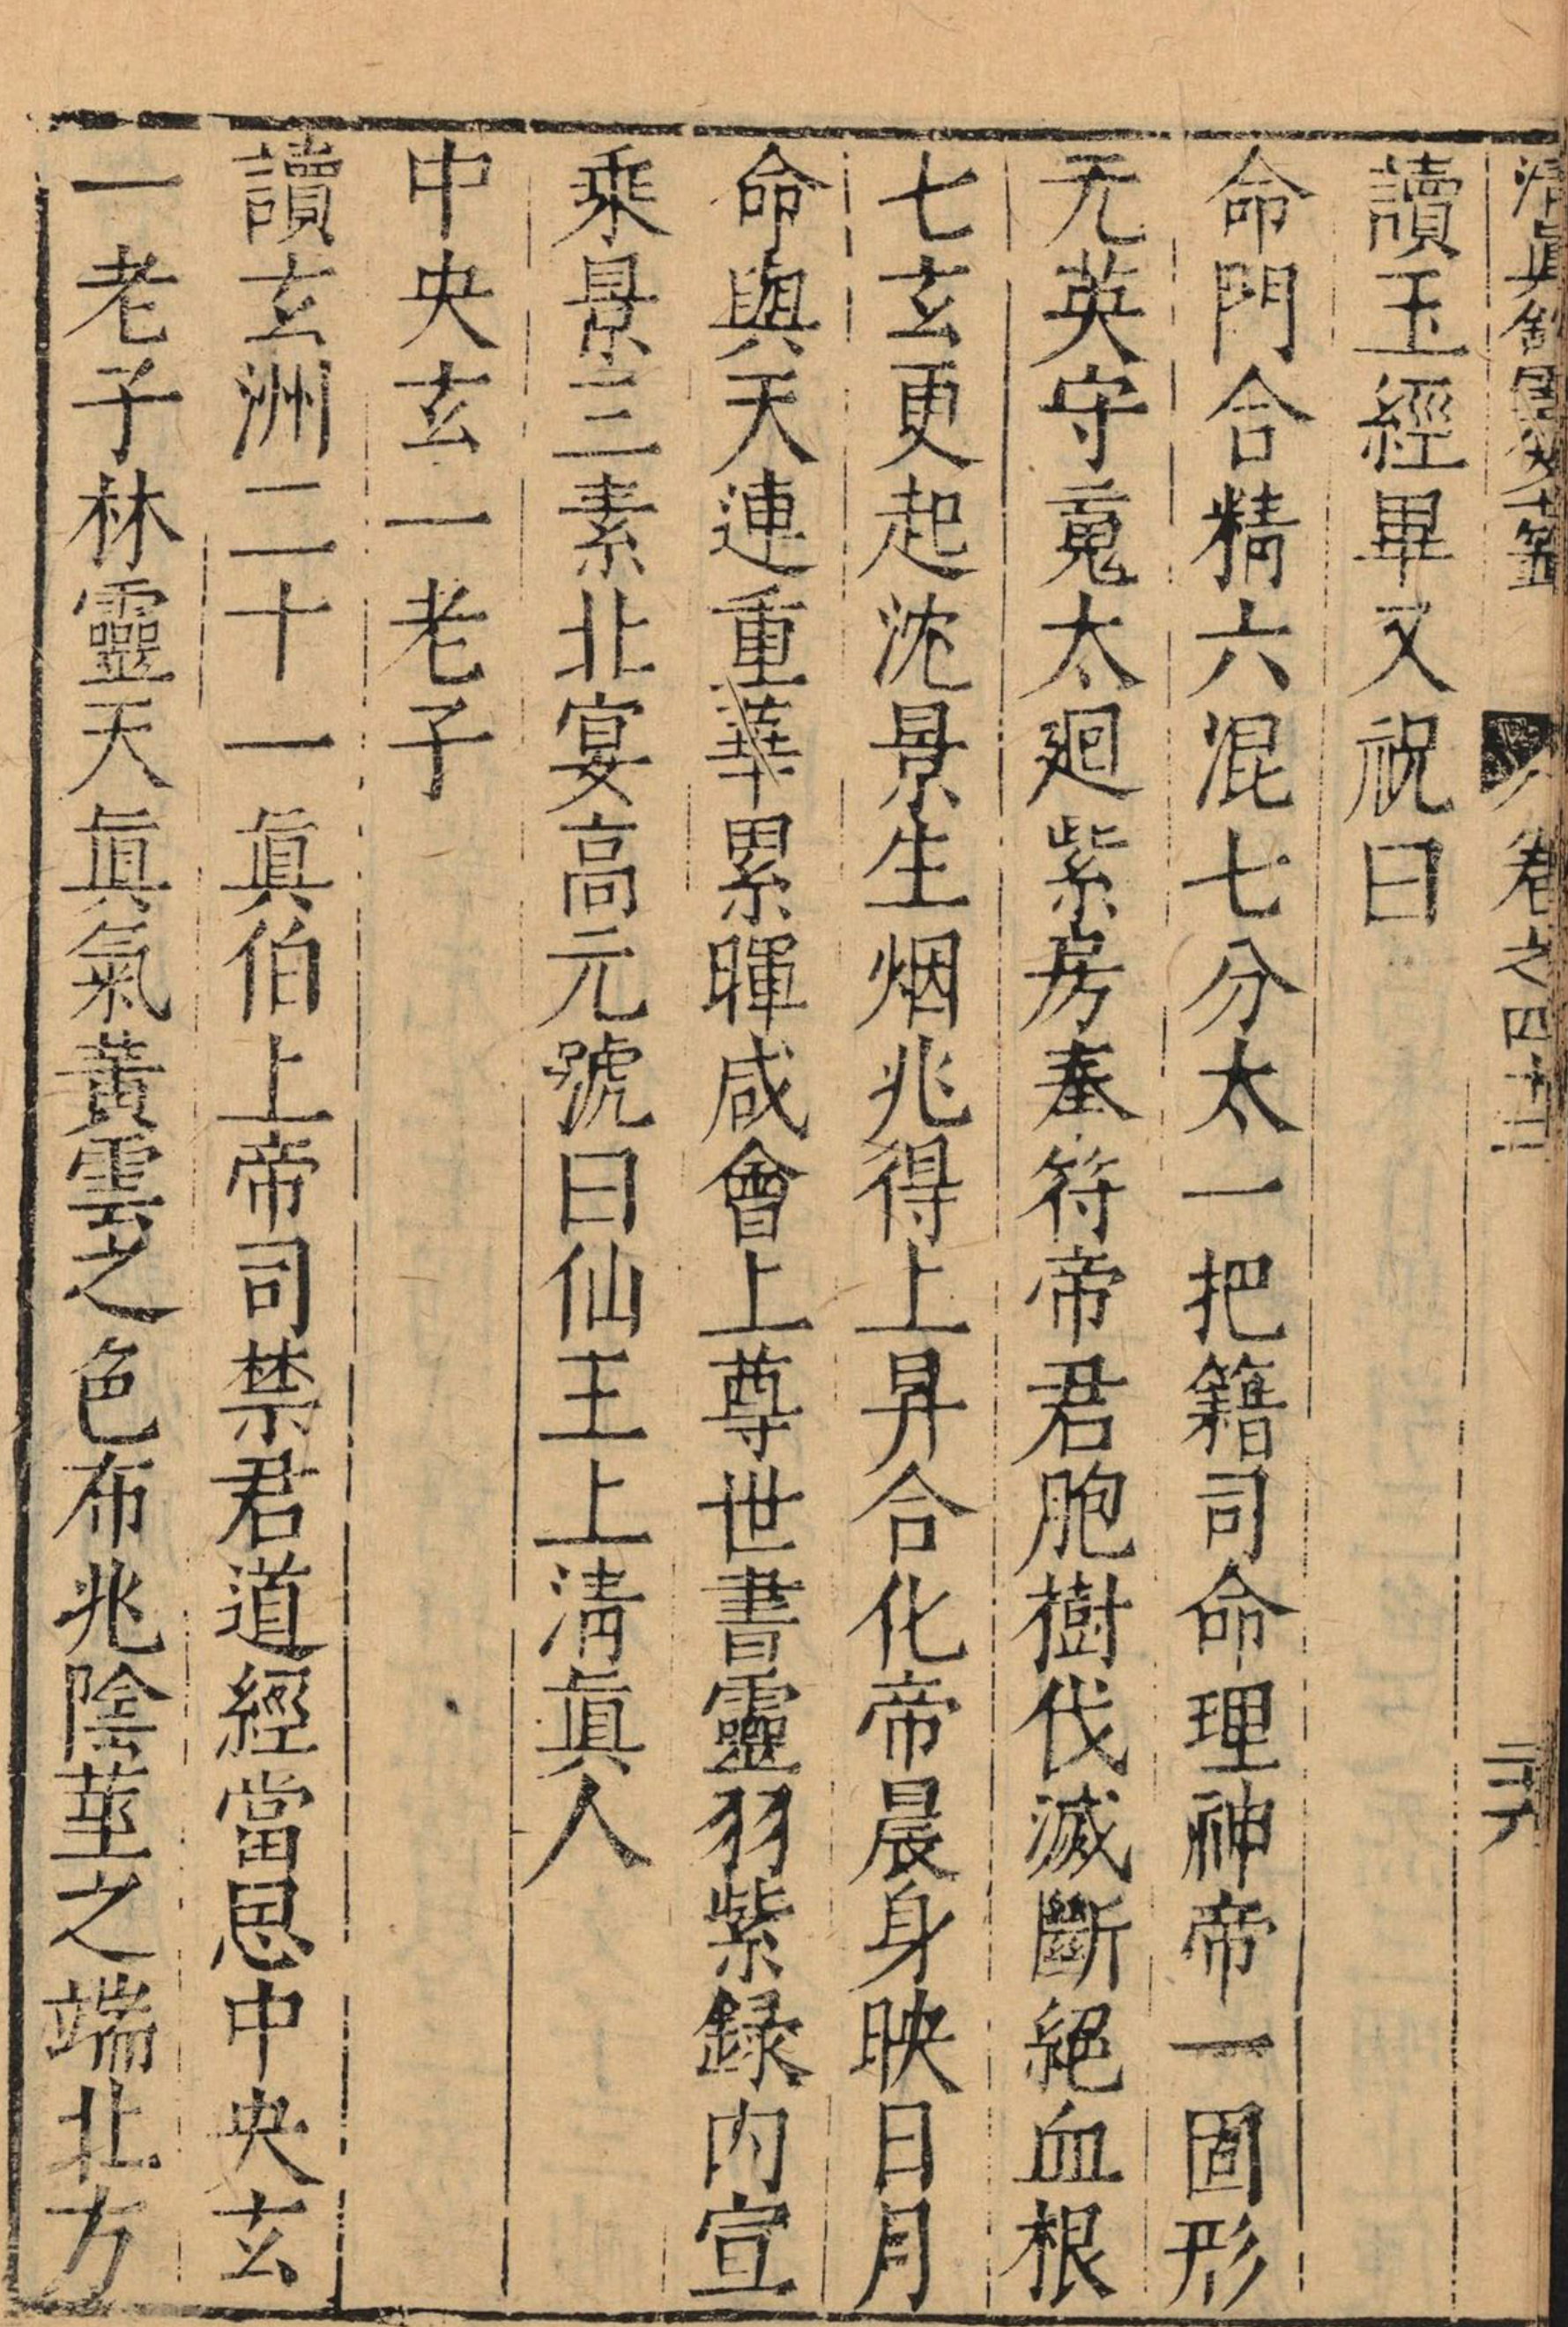 卷之四十二
讀玉經畢又祝曰
命門合精六混七分太一把籍司命理神帝一固形
无英守䰟太廻紫房奉符帝君胞樹伐滅斷絕血根
七玄更起沈景生烟兆得上昇合化帝晨身映日月
命與天連重華累暉咸會上尊世書靈羽紫録內宣
乘景三素北宴高元號曰仙王上清眞人
中央玄一老子
讀玄洲二十一眞伯上帝司禁君道經當思中央玄
一老子林靈天眞氣黃雲之色布兆陰莖之端北方